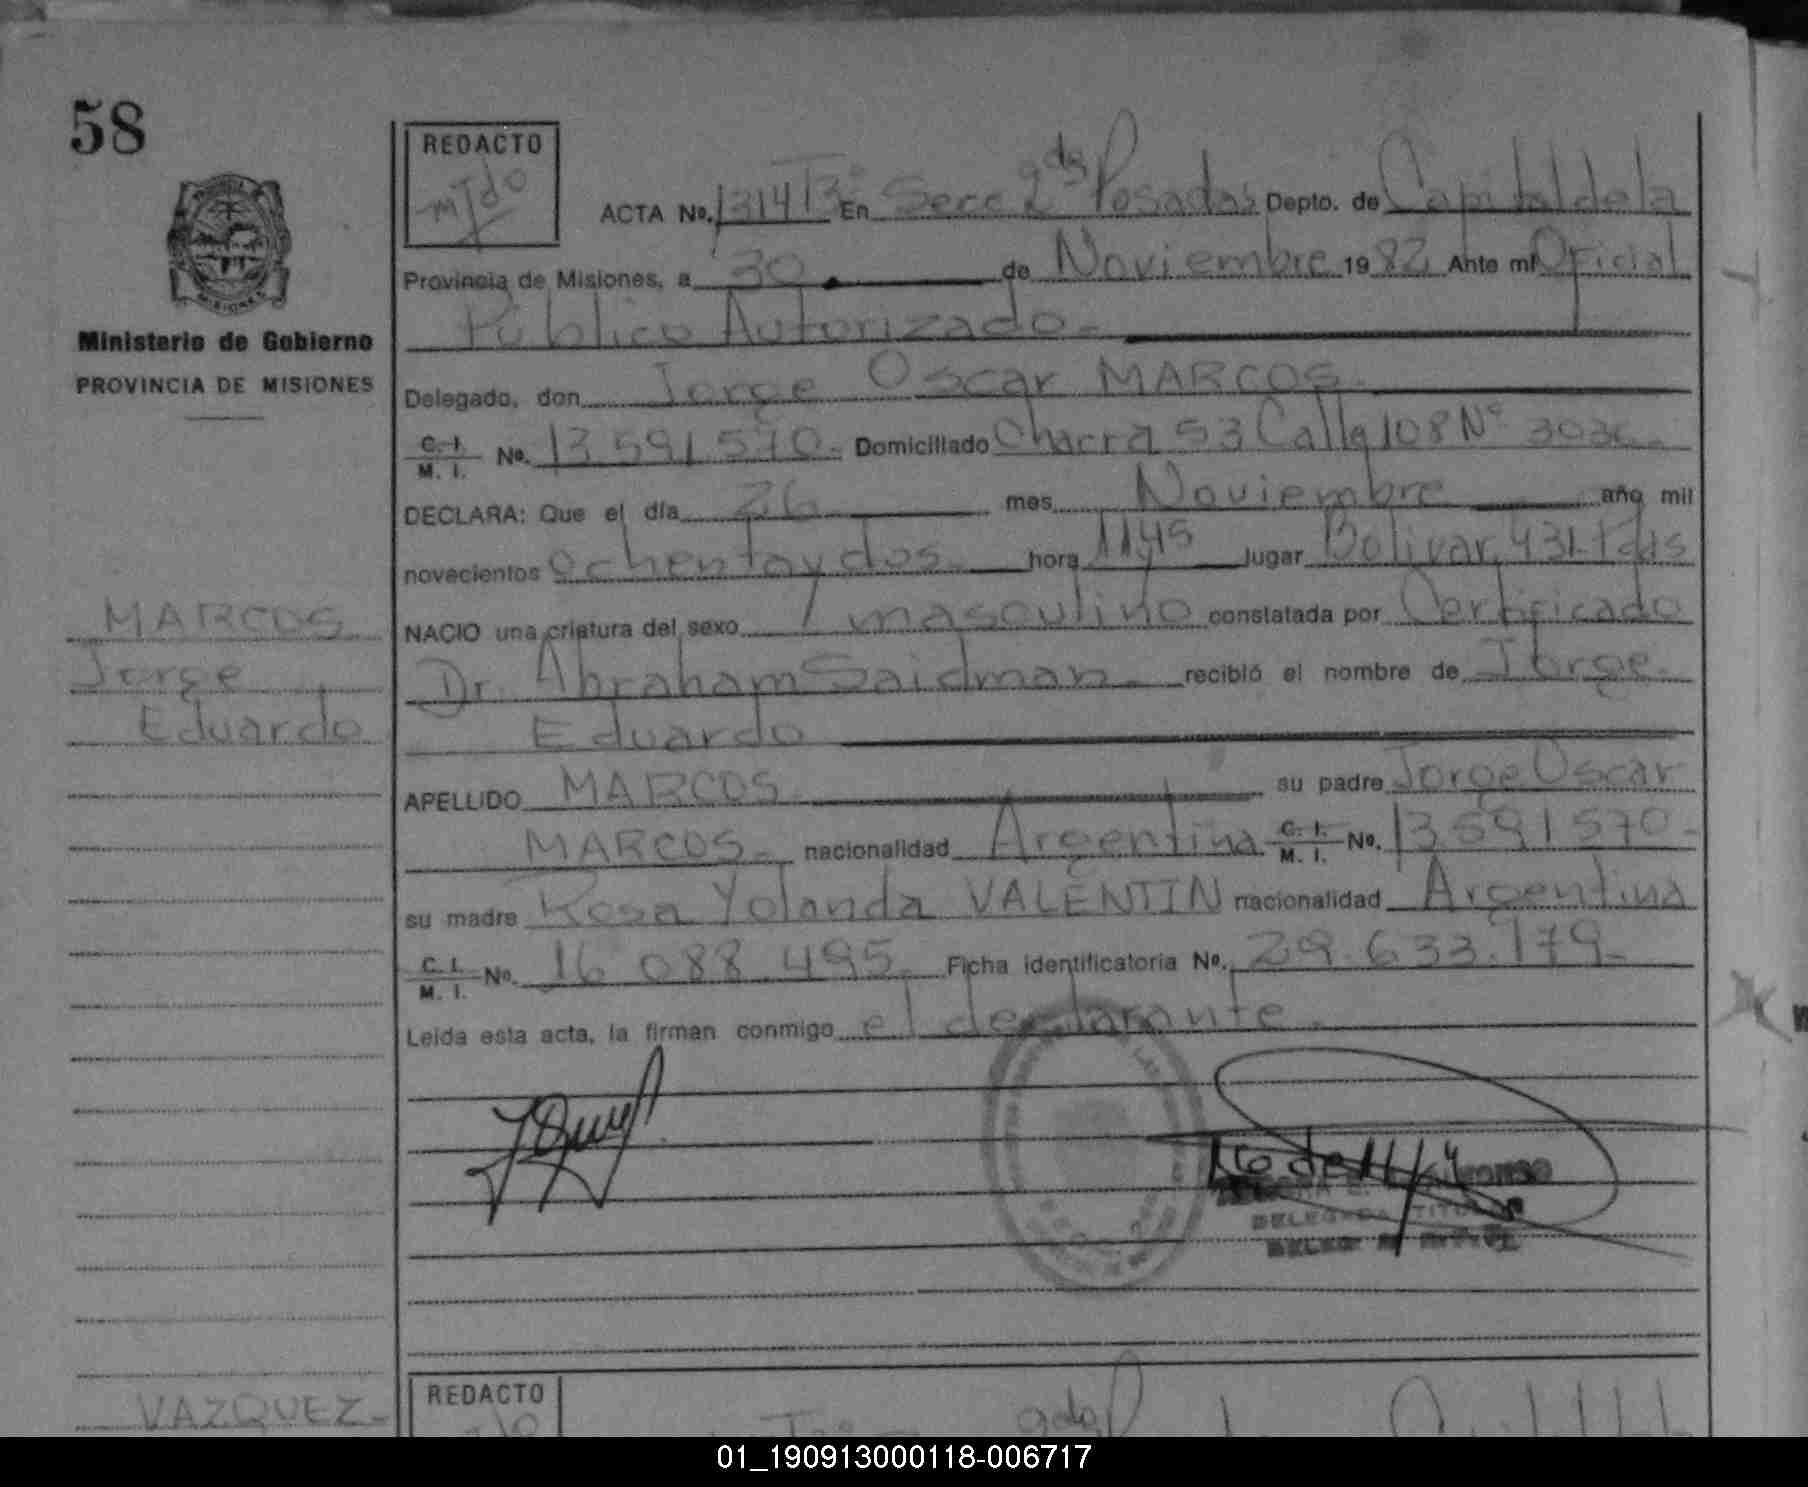 58
REDACTO
ACTA No. 1314 Tº 3º En Secc 2da Posadas Depto. de Capital de la
Provincia de Misiones, a 30 de Noviembre 1982 Ante mi Oficial
Público Autorizado.-
Ministerio de Gobierno
PROVINCIA DE MISIONES
Delegado, don Jorge Oscar MARCOS.
C. I. M. I. No. 13.591.570.- Domiciliado Chacra 53 Calle 108 Nº
DECLARA: Que el día 26 mes Noviembre año mil
novecientos ochenta y dos.- hora 11,45 lugar Bolivar 431- Pdas
MARCOS
Jorge
Eduardo
NACIO una criatura del sexo masculino constatada por Certificado
Dr. Abraham Saidman.- recibió el nombre de Jorge
Eduardo
APELLIDO MARCOS su padre Jorge Oscar
MARCOS.- nacionalidad Argentina C. I. M. I. No. 13.591.570.-
su madre Rosa Yolanda VALENTIN nacionalidad Argentina
C. I. M. I. No. 16.088.495. Ficha identificatoria No. 29.633.179.-
Leida esta acta, la firman conmigo el declarante.
DELEGADA TITULAR
VAZQUEZ-
REDACTO
01_190913000118-006717